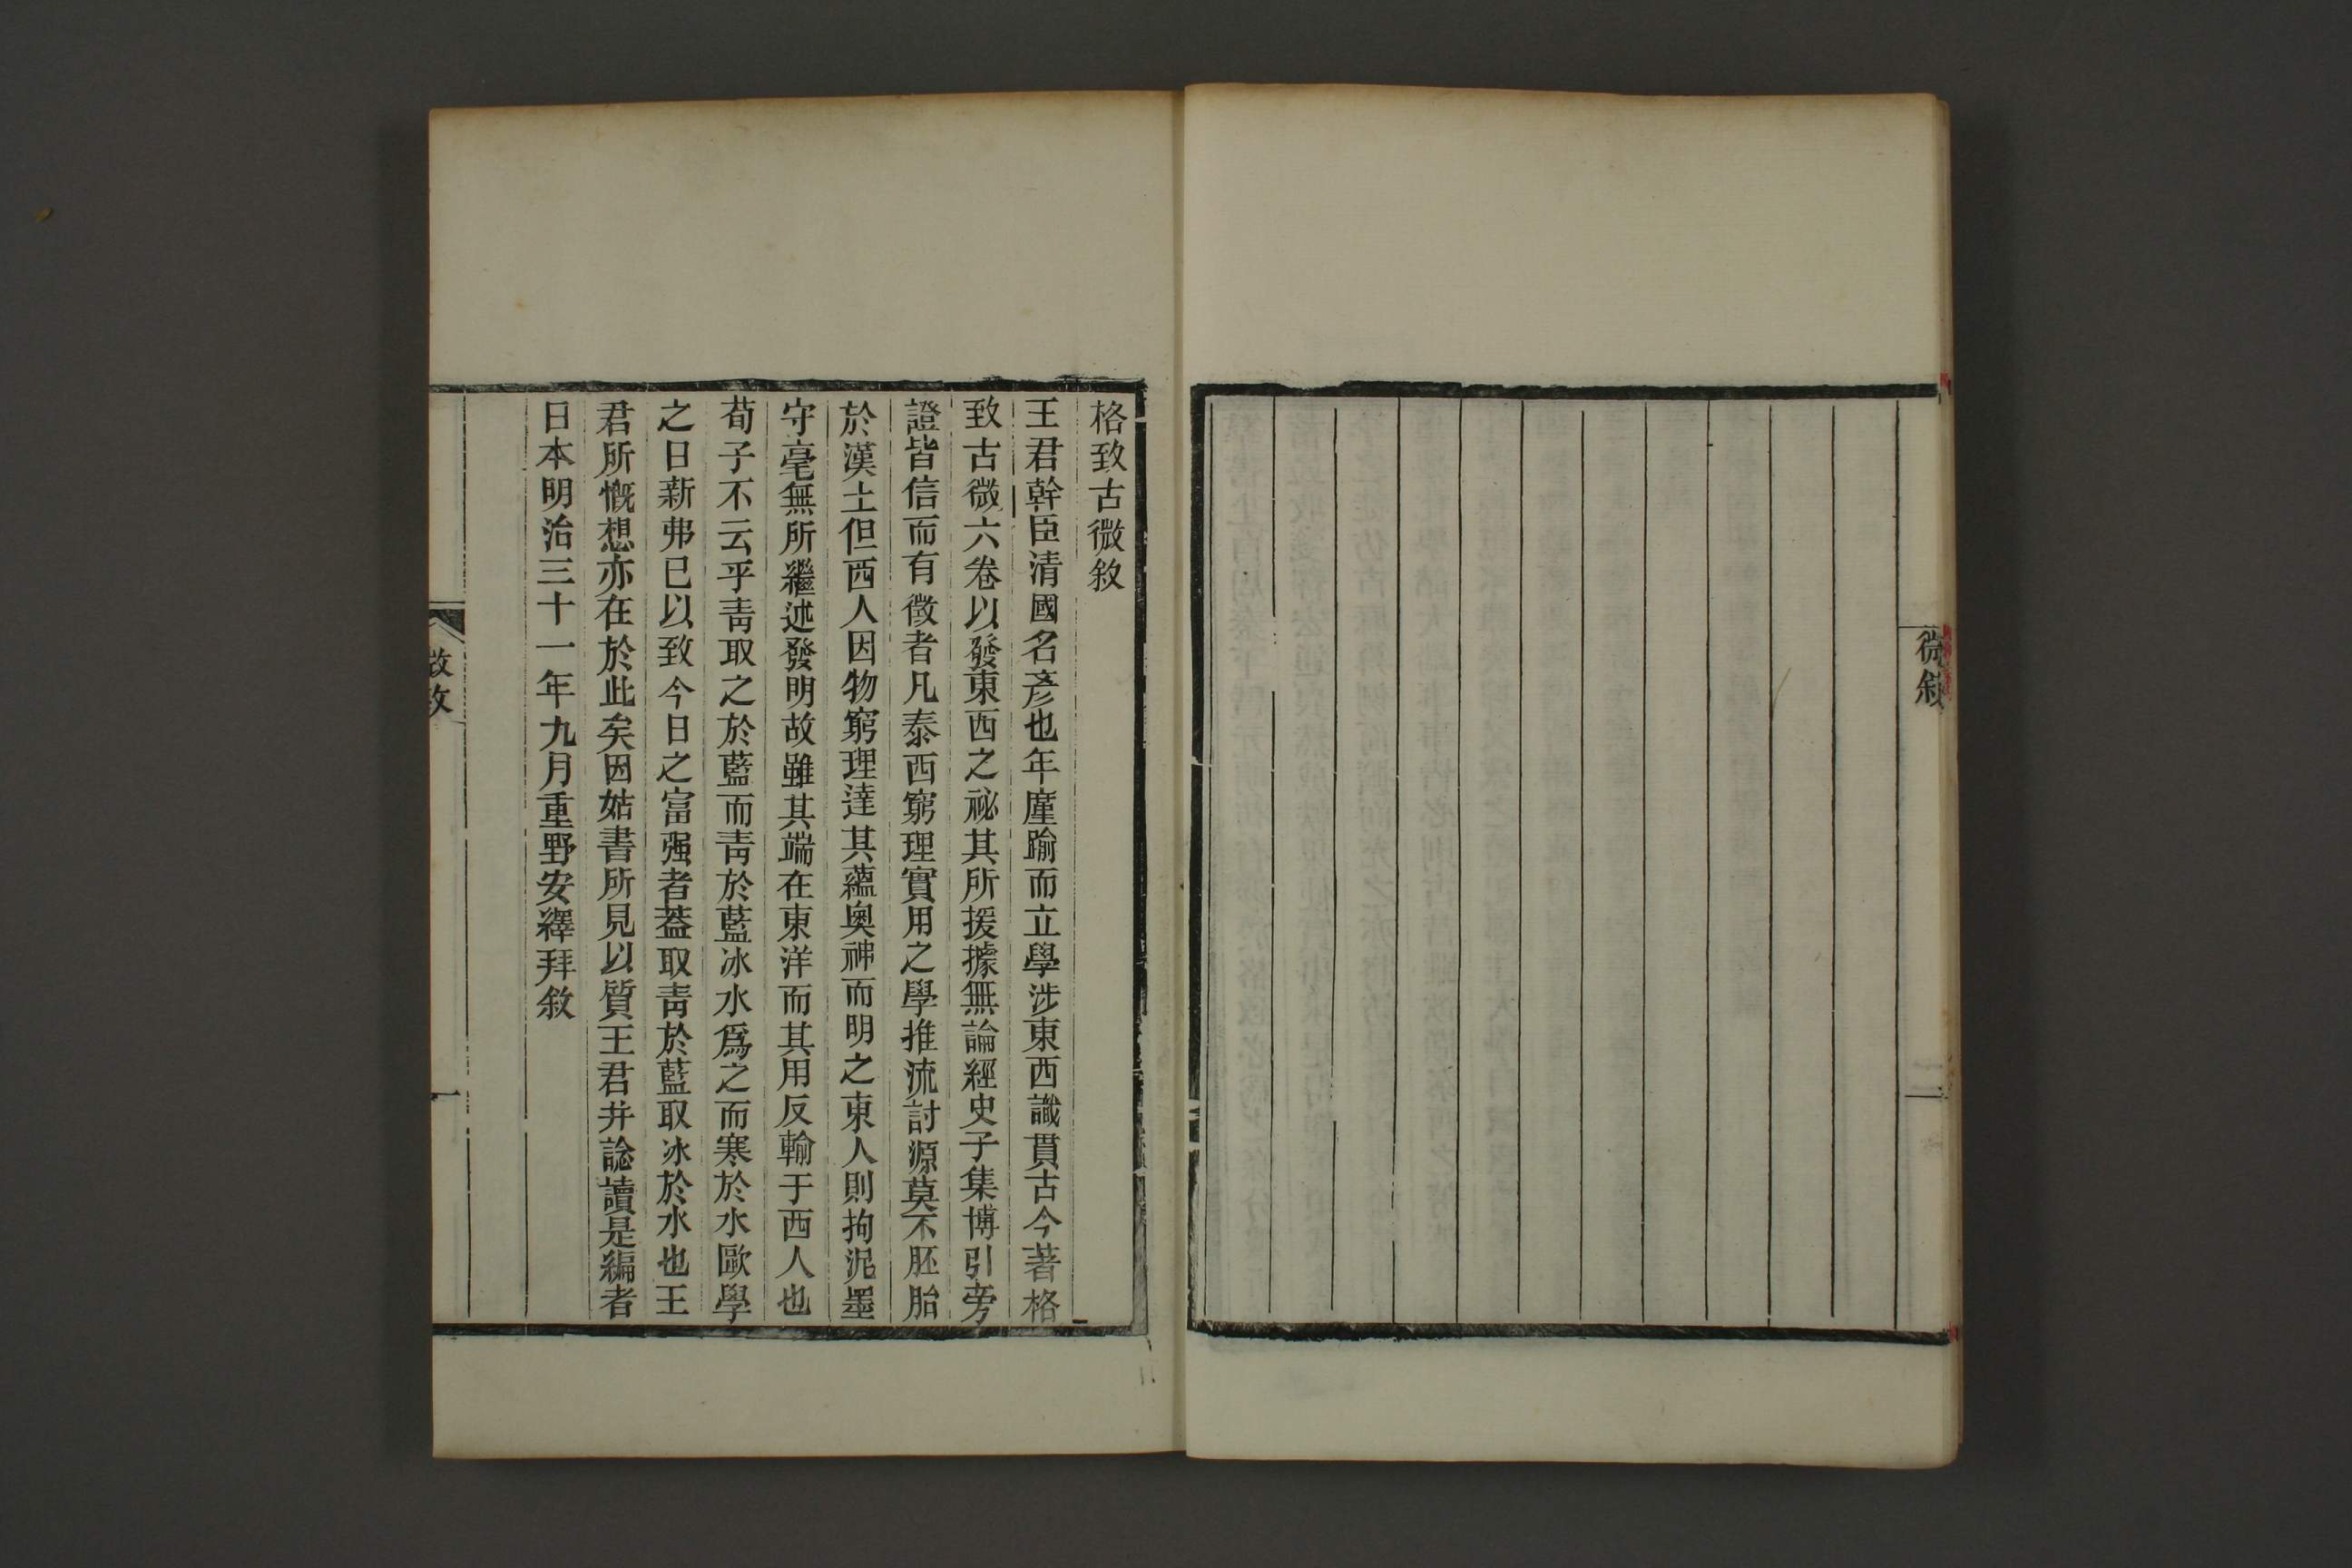 微敘
二
格致古微敘
王君幹臣清國名彥也年廑踰而立學涉東西識貫古今著格
致古微六卷以發東西之祕其所援據無論經史子集博引旁
證皆信而有徵者凡泰西窮理實用之學推流討源莫不胚胎
於漢土但西人因物窮理達其蘊奧神而明之東人則拘泥墨
守毫無所繼述發明故雖其端在東洋而其用反輸于西人也
荀子不云乎靑取之於藍而靑於藍冰水爲之而寒於水歐學
之日新弗已以致今日之富强者葢取靑於藍取冰於水也王
君所慨想亦在於此矣因姑書所見以質王君并諗讀是編者
日本明治三十一年九月重野安繹拜敘
一